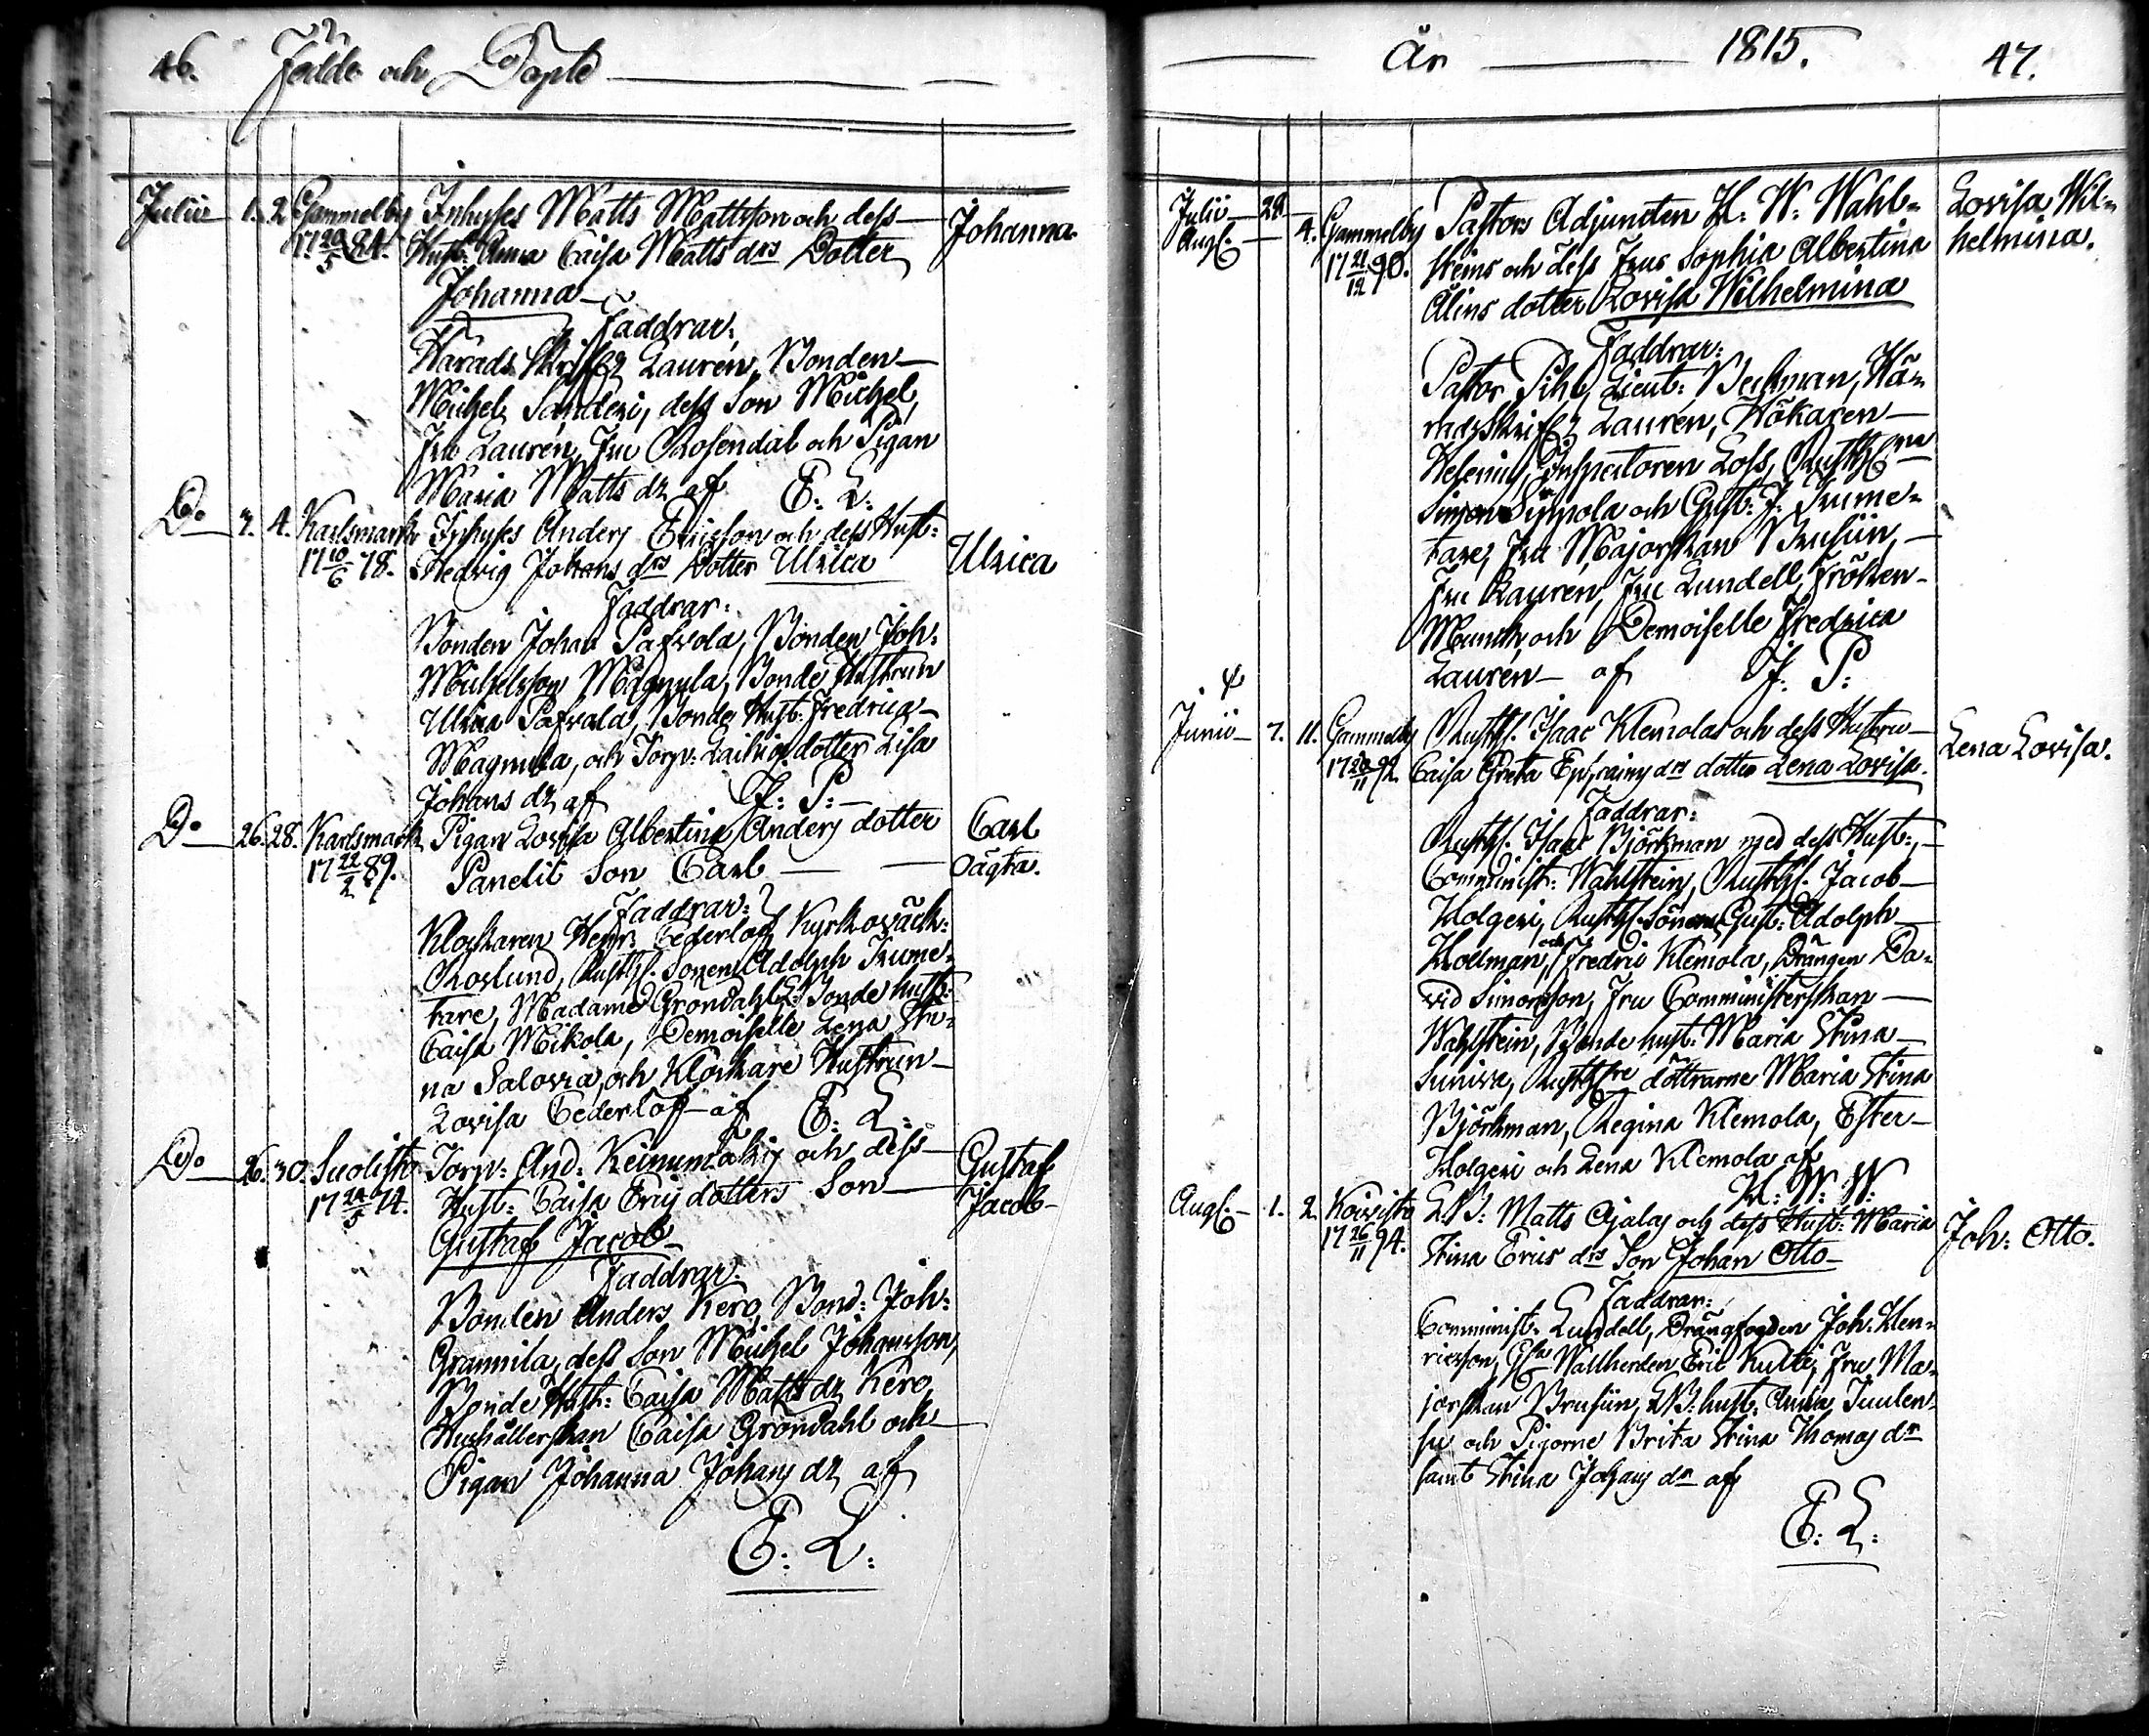 46. Födde och Döpte
Julii 1. 2. Gammelby Inhyses Matts Mattsson och dess Johanna.
17 20/5 84. Hust: Anna Caisa Matts drs Dotter
Johanna
Faddrar:
Härads Skrifv: Laurén, Bonden
Michel Sanderi, dess Son Michel,
Fru Laurén, Fru Rosendal och Pigan
Maria Matts dr af E: L:
Do 3. 4. Karlsmark Inhyses Anders Ericsson och dess Hust:
17 10/6 78. Hedvig Johans drs Dotter Ulrica Ulrica
Faddrar:
Bonden Johan Pafvola, Bonden Joh:
Michelsson Magnula, Bonde Hustrun
Ulrica Pafvola, Bonde Hust: Fredrica
Magnula, och Torp: dotter Lisa
Johans dr af J: P:
Do 26. 28. Karlsmark Pigan Lovisa Albertina Anders dotter Carl
17 22/2 89. Panelit Son Carl oägta.
Faddrar:
Klockaren Henr: Cederlöf, Kyrkoväck:
Roslund, Rusth. Sonen Adolph Trume-
tare, Madame Gröndahl, Bonde hust:
Caisa Mikola, Demoiselle Lena Sti-
na Salovia, och Klockare Hustrun
Lovisa Cederlöf af E: L:
Do 26. 30. Suolisto Torp: And: Keinumäki och dess Gustaf
17 24/5 74. Hust: Caisa Eris dotters Son Jacob
Gustaf Jacob
Faddrar:
Bonden Anders Kero, Bond: Joh:
Grannila, dess Son Michel Johansson,
Bonde Hust: Caisa Matts dr Kero,
Hushållerskan Caisa Gröndahl och
Pigan Johanna Johans dr af
E: L:
År 1815. 47.
Julii 28. Gammelby Pastors Adjuncten H. W. Wahl- Lovisa Wil-
Aug. 4. 17 21/12 90. steins och dess Frus Sophia Albertina helmina.
Ålins dotter Lovisa Wilhelmina
Faddrar:
Pastor Pihl, Lieut: Beckman, Hä-
radsskrifv: Laurén, Hökaren
Helenius, Inspectoren Loss, Rusth:
Simon Sippola och Gust: J: Trume-
tare, Fru Majorskan Brusiin,
Fru Laurén, Fru Lundell, Fröken
Munck, och Demoiselle Fredrica
Laurén af J: P:
Junii 7. 11. Gammelby Rusth. Isaac Klemolas och dess Hustru Lena Lovisa.
17 20/11 92. Caisa Greta Ephraims drs dotter Lena Lovisa.
Faddrar:
Rusth. Isaac Björkman med dess Hust:,
Comminist: Wahlstein, Rusth. Jacob
Holgeri, Rusth. Sönerne Gust: Adolph
Hollman, och Fredric Klemola, Drängen Da-
vid Simonsson, Fru Comministerskan
Wahlstein, Bonde hust: Maria Stina
Suniva, Rusth. döttrarne Maria Stina
Björkman, Regina Klemola, Ester
Holgeri och Lena Klemola af
H: W: W:
Aug. 1. 2. Koivisto L.B: Matts Ojalas och dess Hust: Maria Joh: Otto.
17 26/11 94. Stina Erics drs Son Johan Otto
Faddrar:
Comminist. Lundell, Drängfogden Joh. Hen-
ricsson, Wallherden Eric Kulti, Fru Ma-
jorskan Brusiin, L.B: hust: Anna Juulen-
su och Pigorne Brita Stina Thomas dr
samt Stina Johans dr af
E: L: